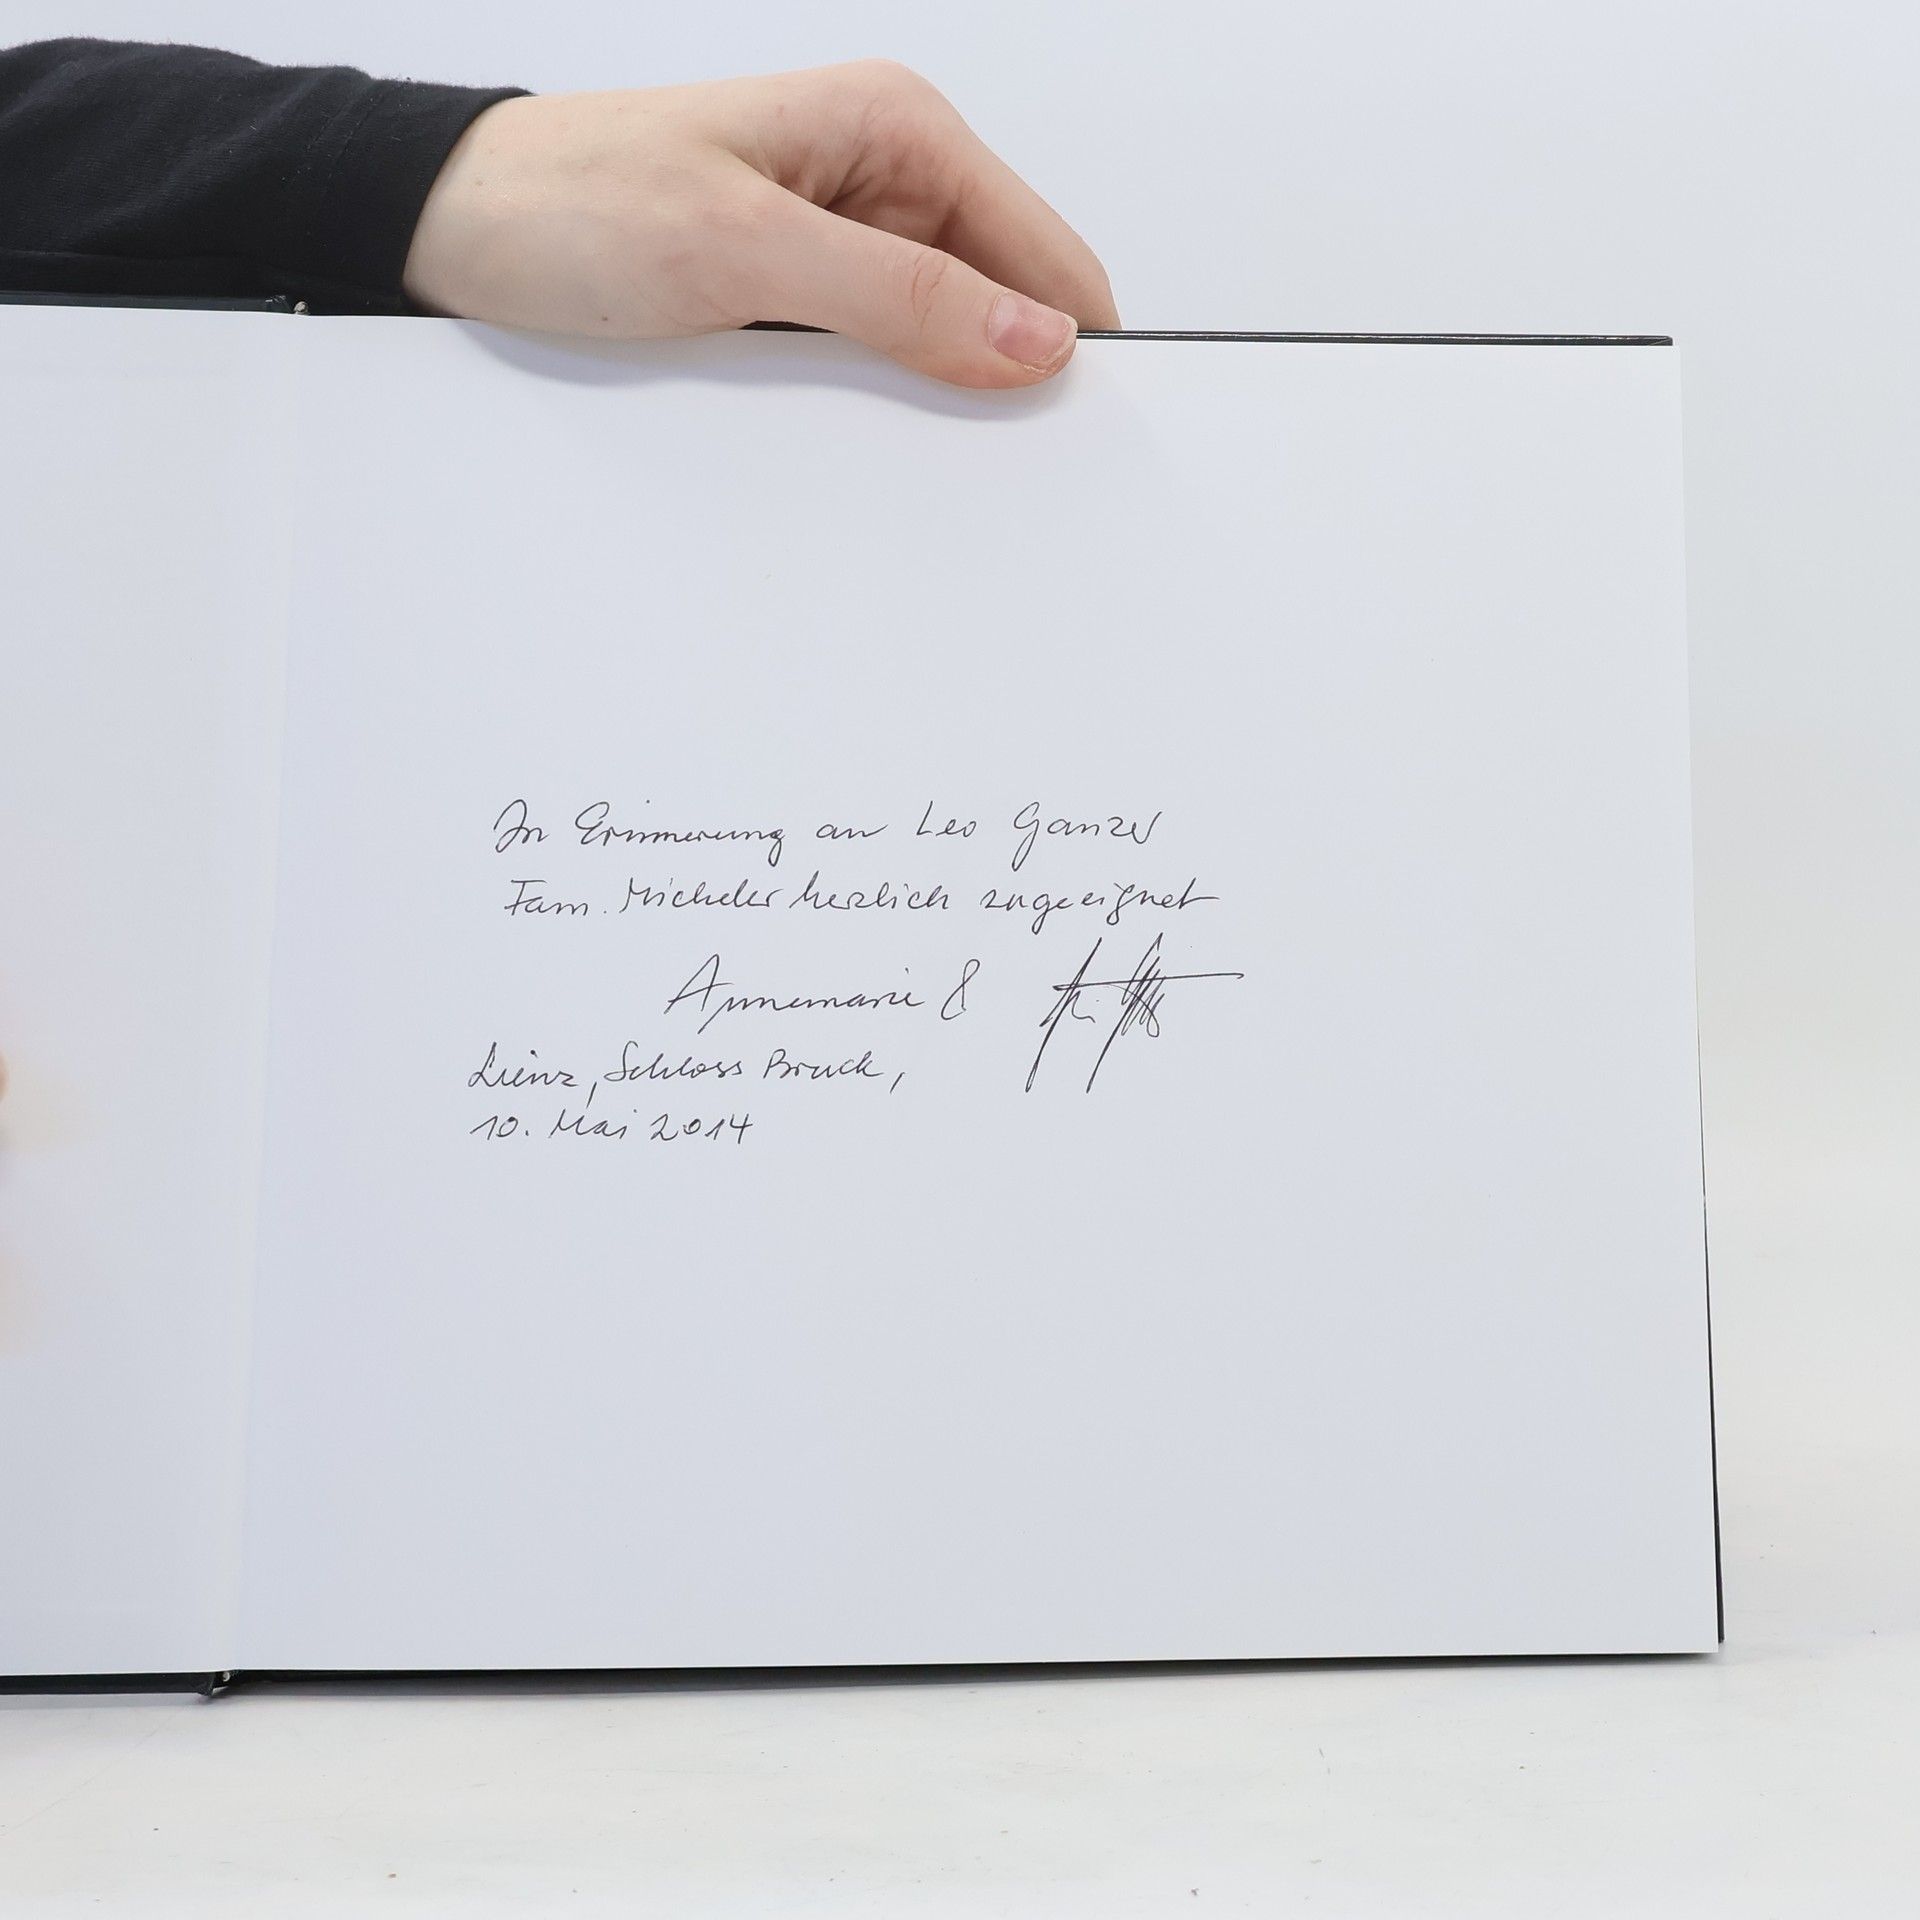 In Erinnerung an Leo Ganzer
Fam. Micheler herzlich zugeeignet
Annemarie &
Lienz, Schloss Bruck,
10. Mai 2014